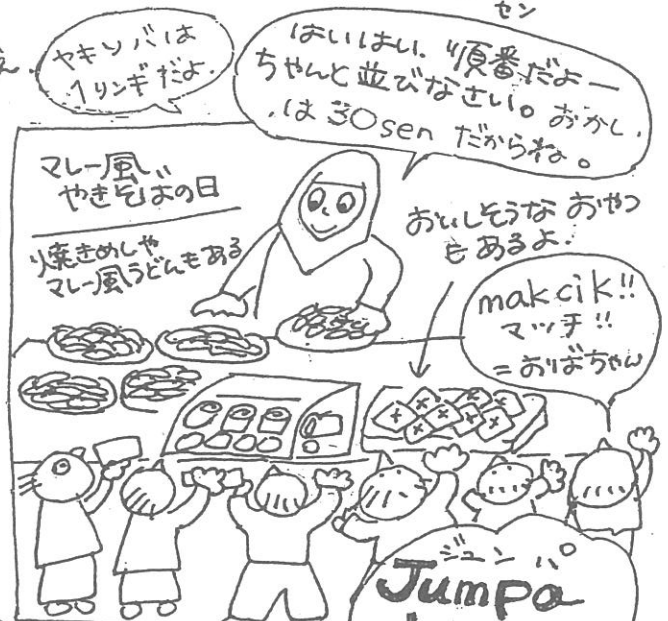 え.
ヤキソバは
1リンギだよ.
セン
はいはい、順番だよー
ちゃんと並びなさい。おかし
は30senだからね。
マレー風
やきそばの日
焼きめしや
マレー風うどんもある
おいしそうなおやつ
もあるよ.
makcik!!
マッチ!!
=おばちゃん
ジュンパ
Jumpa